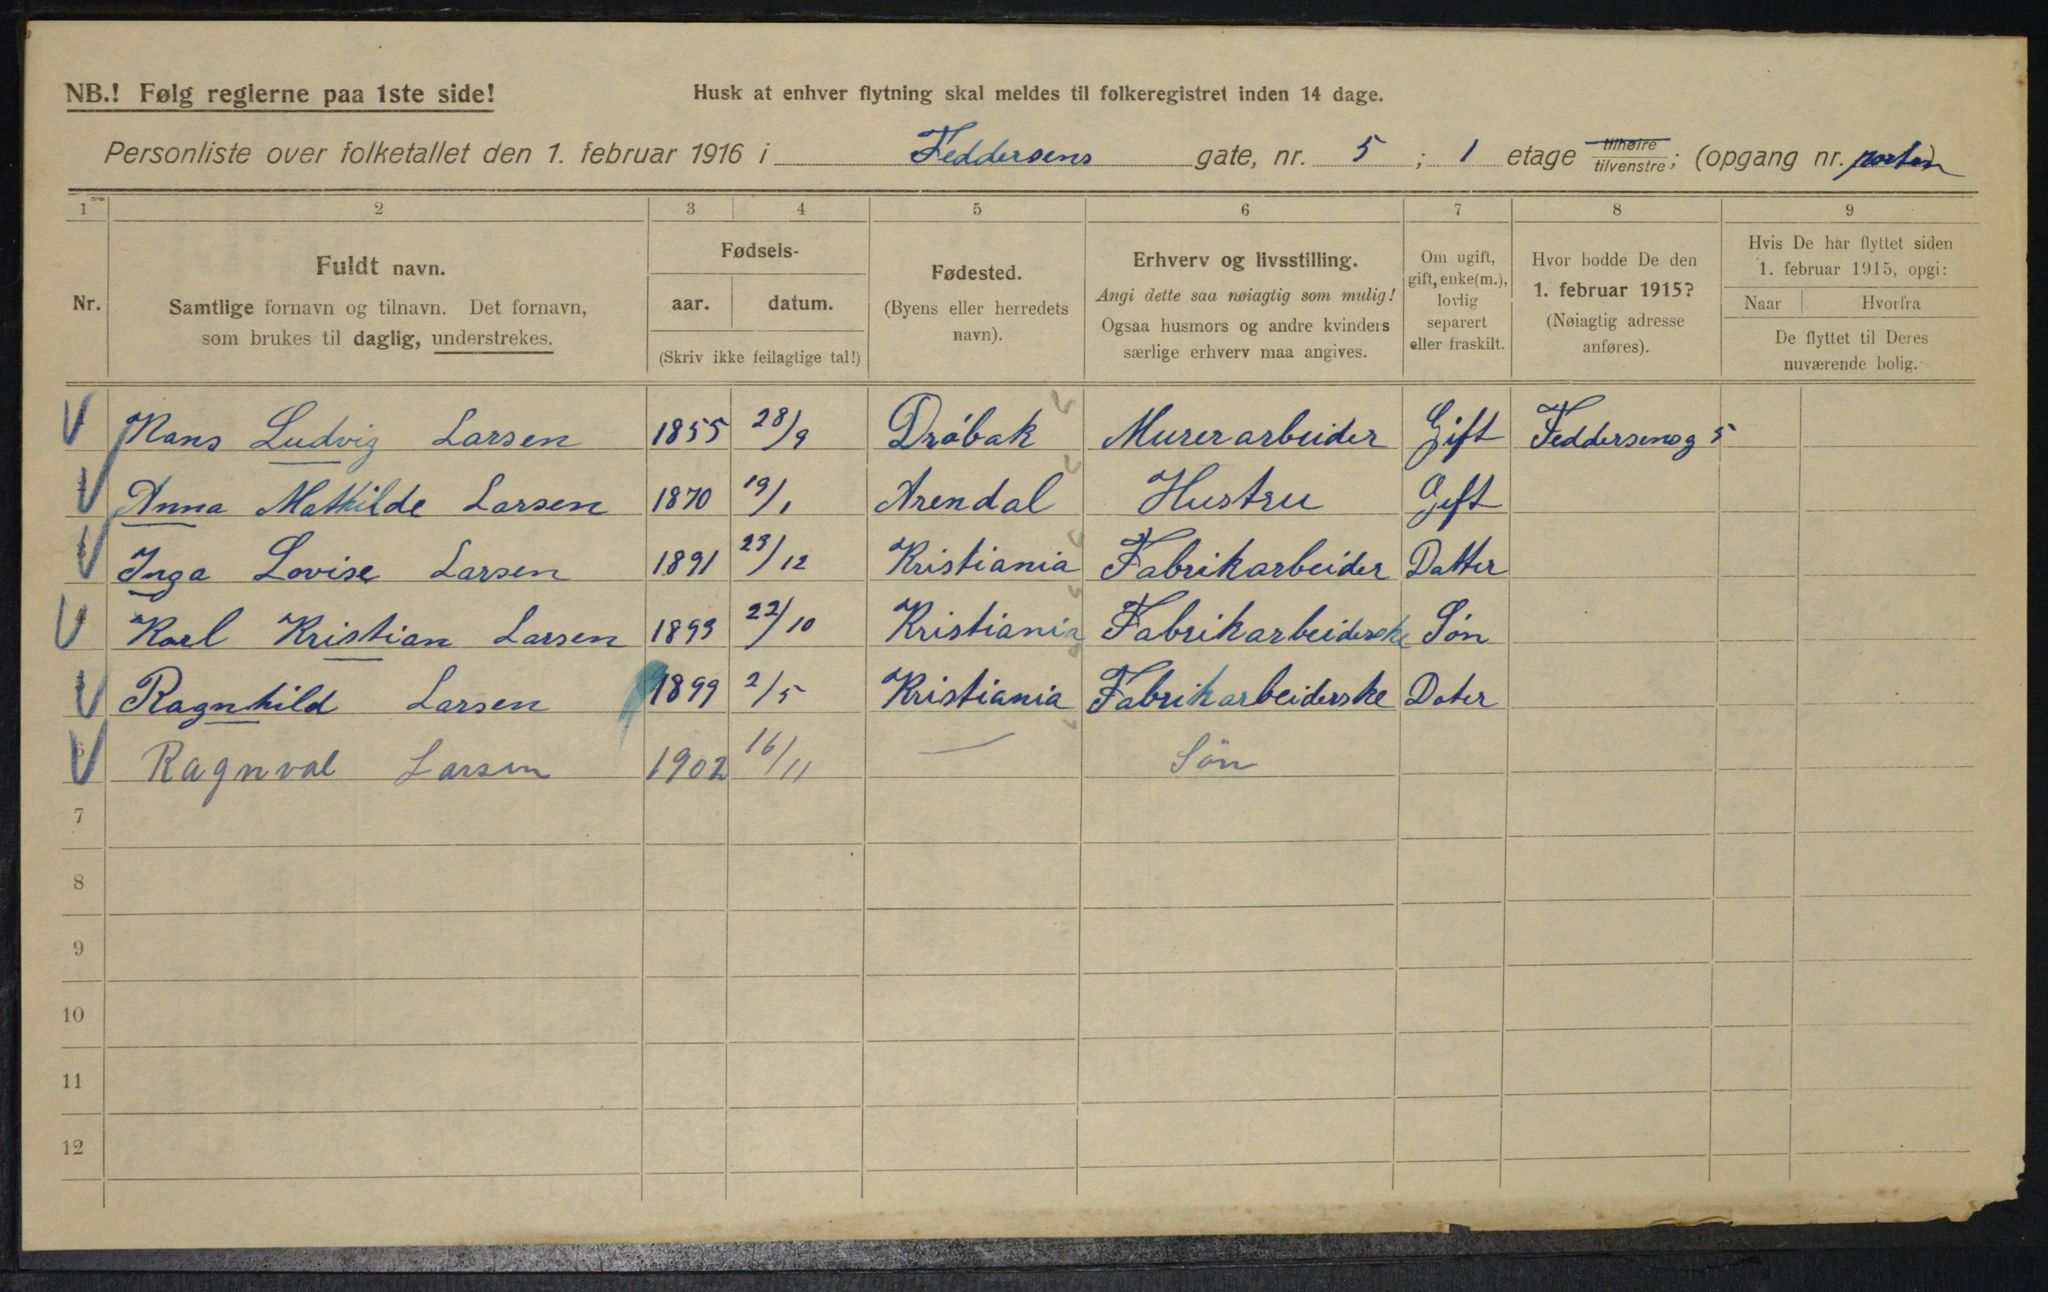 NB.! Følg reglerne paa 1ste side!
Husk at enhver flytning skal meldes til folkeregistret inden 14 dage.
Personliste over folketallet den 1. februar 1916 i Feddersens gate, nr. 5 ; 1 etage tilhøire/tilvenstre; (opgang nr. porten)
1 2 3 4 5 6 7 8 9
Nr.
Fuldt navn.
Samtlige fornavn og tilnavn. Det fornavn,
som brukes til daglig, understrekes.
Fødsels-
aar. datum.
(Skriv ikke feilagtige tal!)
Fødested.
(Byens eller herredets
navn).
Erhverv og livsstilling.
Angi dette saa nøiagtig som mulig!
Ogsaa husmors og andre kvinders
særlige erhverv maa angives.
Om ugift,
gift, enke(m.),
lovlig
separert
eller fraskilt.
Hvor bodde De den
1. februar 1915?
(Nøiagtig adresse
anføres).
Hvis De har flyttet siden
1. februar 1915, opgi:
Naar Hvorfra
De flyttet til Deres
nuværende bolig.
Hans Ludvig Larsen 1855 28/9 Drøbak Murerarbeider Gift Feddersensg 5
Anna Mathilde Larsen 1870 19/1 Arendal Hustru Gift
Inga Lovise Larsen 1891 23/12 Kristiania Fabrikarbeider Datter
Karl Kristian Larsen 1893 22/10 Kristiania Fabrikarbeiderske Søn
Ragnhild Larsen 1899 2/5 Kristiania Fabrikarbeiderske Dater
Ragnval Larsen 1902 16/11 — Sön
7
8
9
10
11
12